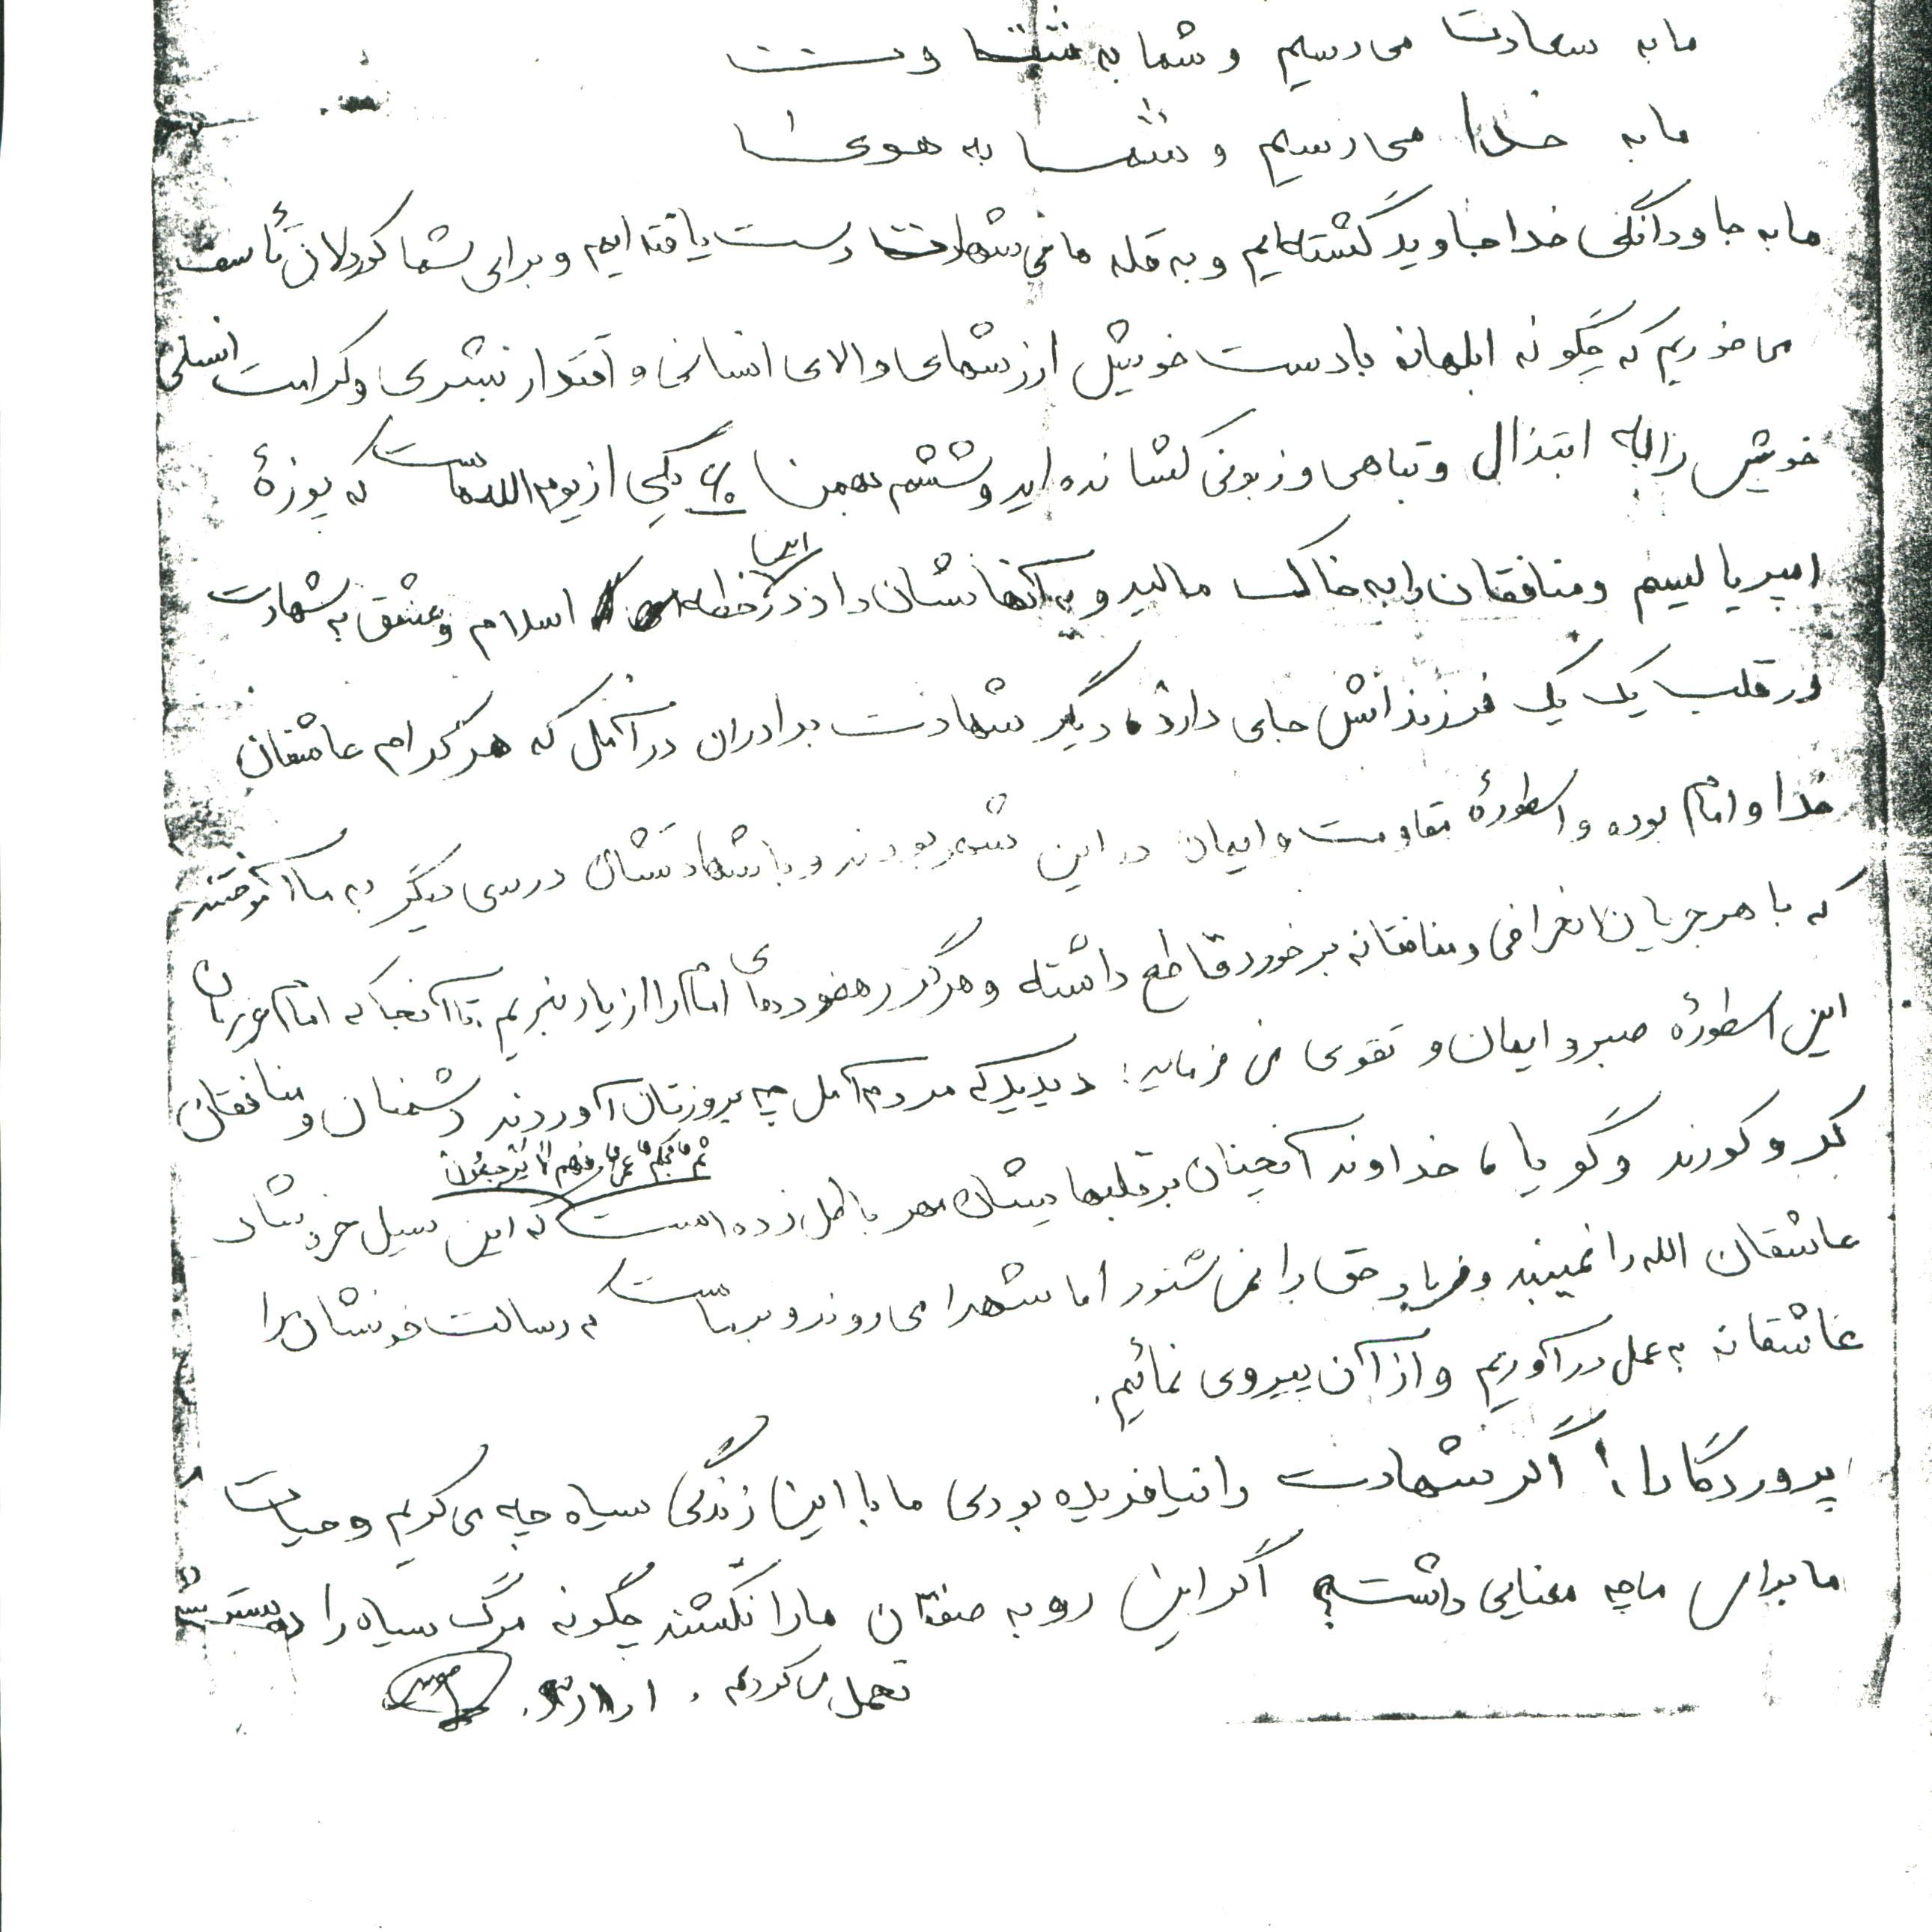 ما به سعادت می رسیم و شما به
ما به خدا می رسیم و شما به هوی
ما به جاودانگی خدا جاوید گشته ایم و به قله شهادت دست یافته ایم و برای شما کوردلان تأسف
می خوریم که چگونه ابلهانه با دست خویش ارزشهای والای انسانی و اقتدار بشری و کرامت انسانی
خویش را به ابتذال و تباهی و زبونی کشانده اید و ششم بهمن ۶۰ یکی از یوم الله هاست که پوزهٔ
امپریالیسم و منافقان را به خاک مالید و به آنها نشان داد در این خطه اسلام و عشق به شهادت
در قلب یک یک فرزندانش جای دارد، دیگر شهادت برادران در آمل که هر کدام عاشقان
خدا و امام بوده و اسطورهٔ مقاومت و ایمان در این شهر بودند و با شهادتشان درسی دیگر به ما آموختند
که با هر جریان انحرافی و منافقانه برخورد قاطع داشته و هرگز رهنمودهای امام را از یاد نبریم تا آنجا که امام عزیزمان
این اسطورهٔ صبر و ایمان و تقوی می فرماید: دیدید که مردم آمل چه بروزتان آوردند دشمنان و منافقان
کر و کورند و گویا، خداوند آنچنان بر قلبهایشان مهر باطل زده است صم بکم عمی فهم لا یرجعون که این سیل خروشان
عاشقان الله را نمیبینند و فریاد حق را نمی شنود اما شهدا می روند و بر ماست که رسالت خونشان را
عاشقانه به عمل در آوریم و از آن پیروی نمائیم.
پروردگارا! اگر شهادت را نیافریده بودی ما با این زندگی سیاه چه می کردیم و حیات
ما برای ما چه معنایی داشت؟ اگر این روبه صفتان ما را نکشتند چگونه مرگ سیاه را در بستر
تحمل می کردیم.